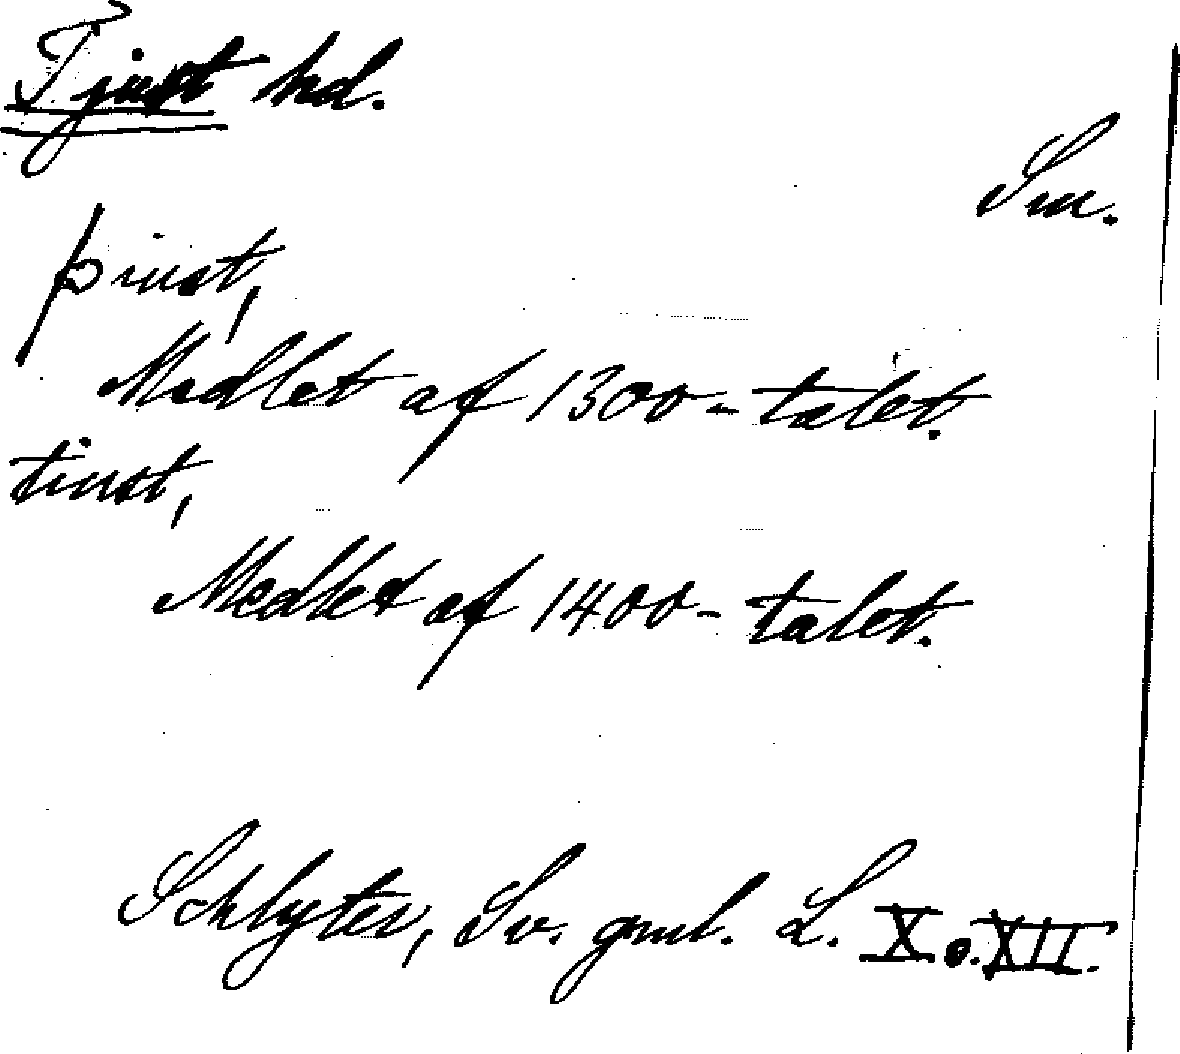 Tjust hd.
Sm.
þiust,
Medlet af 1300-talet.
tiust,
Medlet af 1400-talet.
Schlyter, Sv. gml. L. X o. XII.